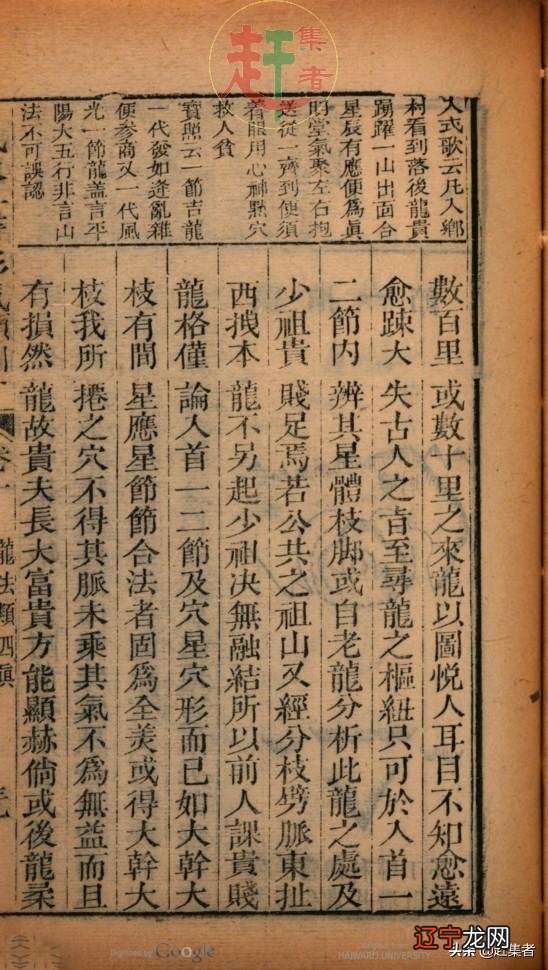 赶集者
入式歌云凡入鄉
村看到落後龍貴
踴躍一山出面合
星辰有應便爲眞
財堂氣聚左右抱
送從一齊到便須
着眼用心神㸃穴
救人貧
寶照云一節吉龍
一代發如逢亂雜
便參商又一代風
光一節龍蓋言平
陽大五行非言山
法不可誤認
數百里或數十里之來龍以圖悅人耳目不知愈遠
愈踈大失古人之旨至尋龍之樞紐只可於入首一
二節内辨其星體枝脚或自老龍分析此龍之處及
少祖貴賤足焉若公共之祖山又經分枝劈脈東扯
西拽本龍不另起少祖决無融結所以前人課貴賤
龍格僅論入首一二節及穴星穴形而已如大幹大
枝有間星應星節節合法者固爲全美或得大幹大
枝我所捲之穴不得其脈未乘其氣不爲無益而且
有損然龍故貴夫長大富貴方能顯赫倘或後龍柔
卷一 龍法類
Digitized by Google
HARVARD UNIVERSITY
辽宁龙网
头条@赶集者